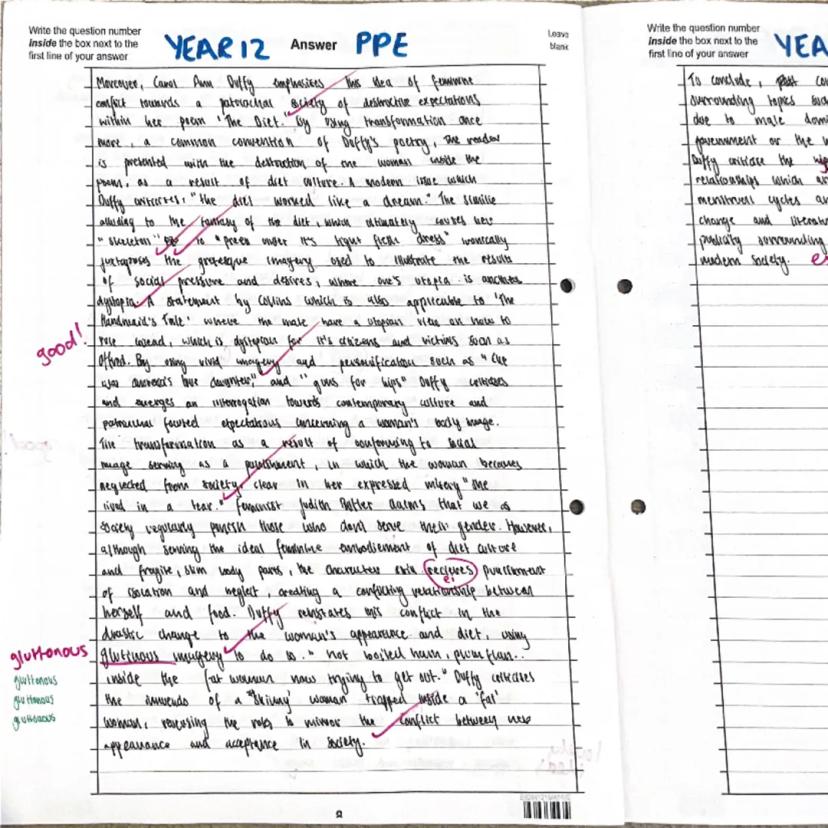 Write the question number
inside the box next to the
first line of your answer
YEAR 12 Answer PPE
Leave
blank
Moreover, Carol Ann Duffy emphasises this idea of feminine
conflict towards a patriarchal society of destructive expectations
within her poem 'The Diet'. By using transformation once
more, a common convention of Duffy's poetry, the reader
is presented with the destruction of one woman inside the
poem, as a result of diet culture. A modern issue which
Duffy criticises: "the diet worked like a dream." The simile
alluding to the fantasy of the diet, which ultimately causes her
"skeleton" to "preen under it's tight flesh dress" ironically
juxtaposes the grotesque imagery used to illustrate the results
of social pressure and desires, where one's utopia is another's
dystopia. A statement by Collins which is also applicable to 'The
Handmaid's Tale' where the male have a utopian view on how to
rule Gilead, which is dystopian for it's citizens and victims such as
Offred. By using vivid imagery and personification such as "
daughter," and "guns for hips" Duffy criticises
and emerges an interrogation towards contemporary culture and
patriarchal expectations concerning a woman's body image.
The transformation as a result of conforming to social
image serving as a punishment, in which the woman becomes
neglected from society, clear in her expressed misery "she
lived in a tear." Feminist Judith Butler claims that we as
society regularly punish those who don't serve their gender. However,
although serving the ideal feminine embodiement of diet culture
and fragile, slim body parts, the character still recieves punishment
ei
of isolation and neglect, creating a conflicting relationship between
herself and food. Duffy this conflict in the
drastic change to the woman's appearance and diet, using
glutinous imagery to do so. "
inside the fat woman now trying to get out." Duffy criticises
the innuendo of a "skinny" woman trapped inside a 'fat'
woman, reversing the roles to mirror the conflict between her
appearance and acceptance in society.
good!
gluttonous
gluttonous
gluttonous
gluttonous
Write the question number
inside the box next to the
first line of your answer
YEA
To conclude,
surrounding topics
due to male
government or the
Duffy criticise the
relationships which
menstrual cycles
change and
publicity surrounding
modern society.